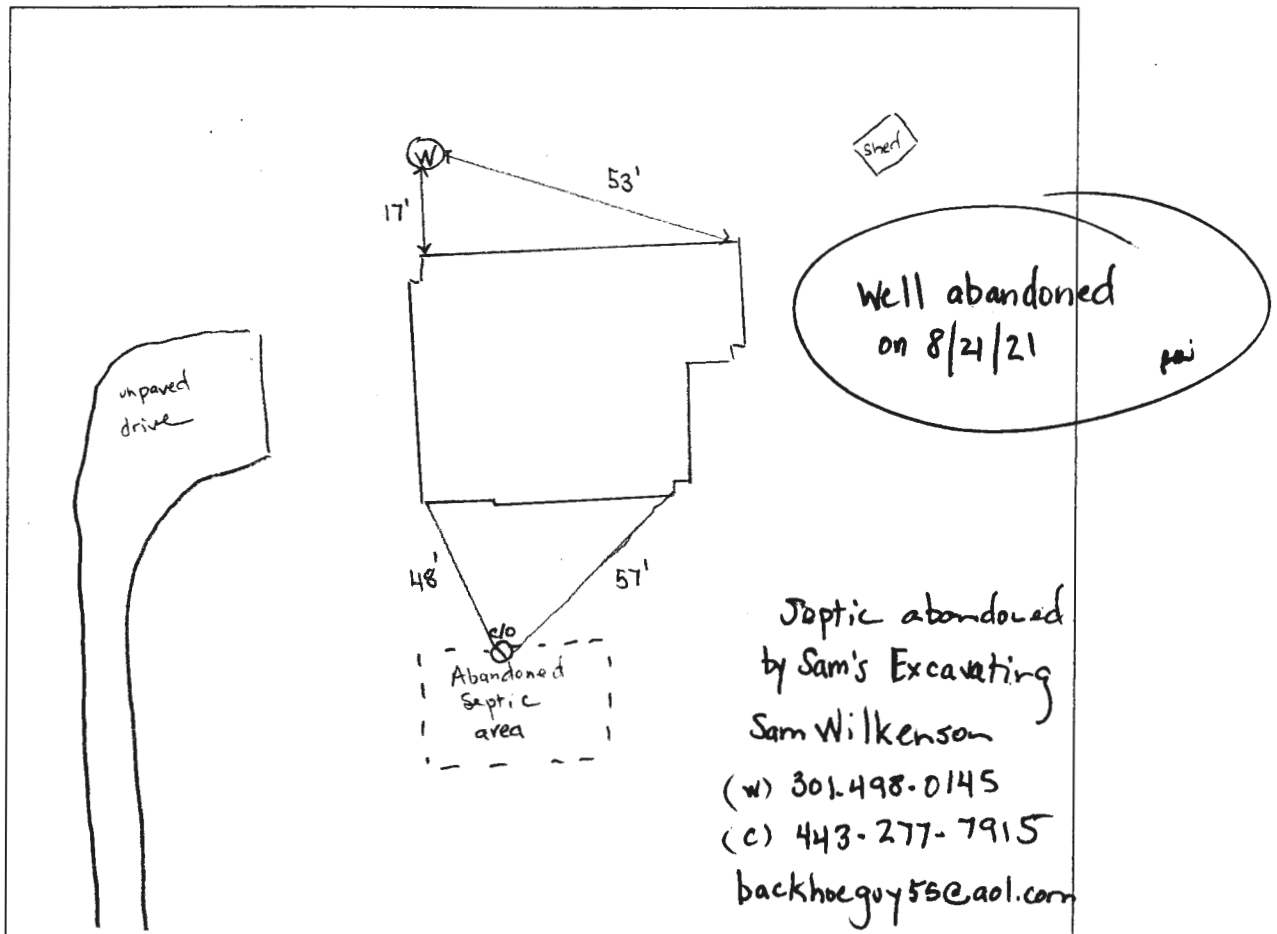 W
53'
17'
shed
Well abandoned
on 8/21/21
unpaved
drive
48'
57'
c/o
Abandoned
Septic
area
Septic abandoned
by Sam's Excavating
Sam Wilkenson
(w) 301-498-0145
(c) 443-277-7915
backhoeguy55@aol.com